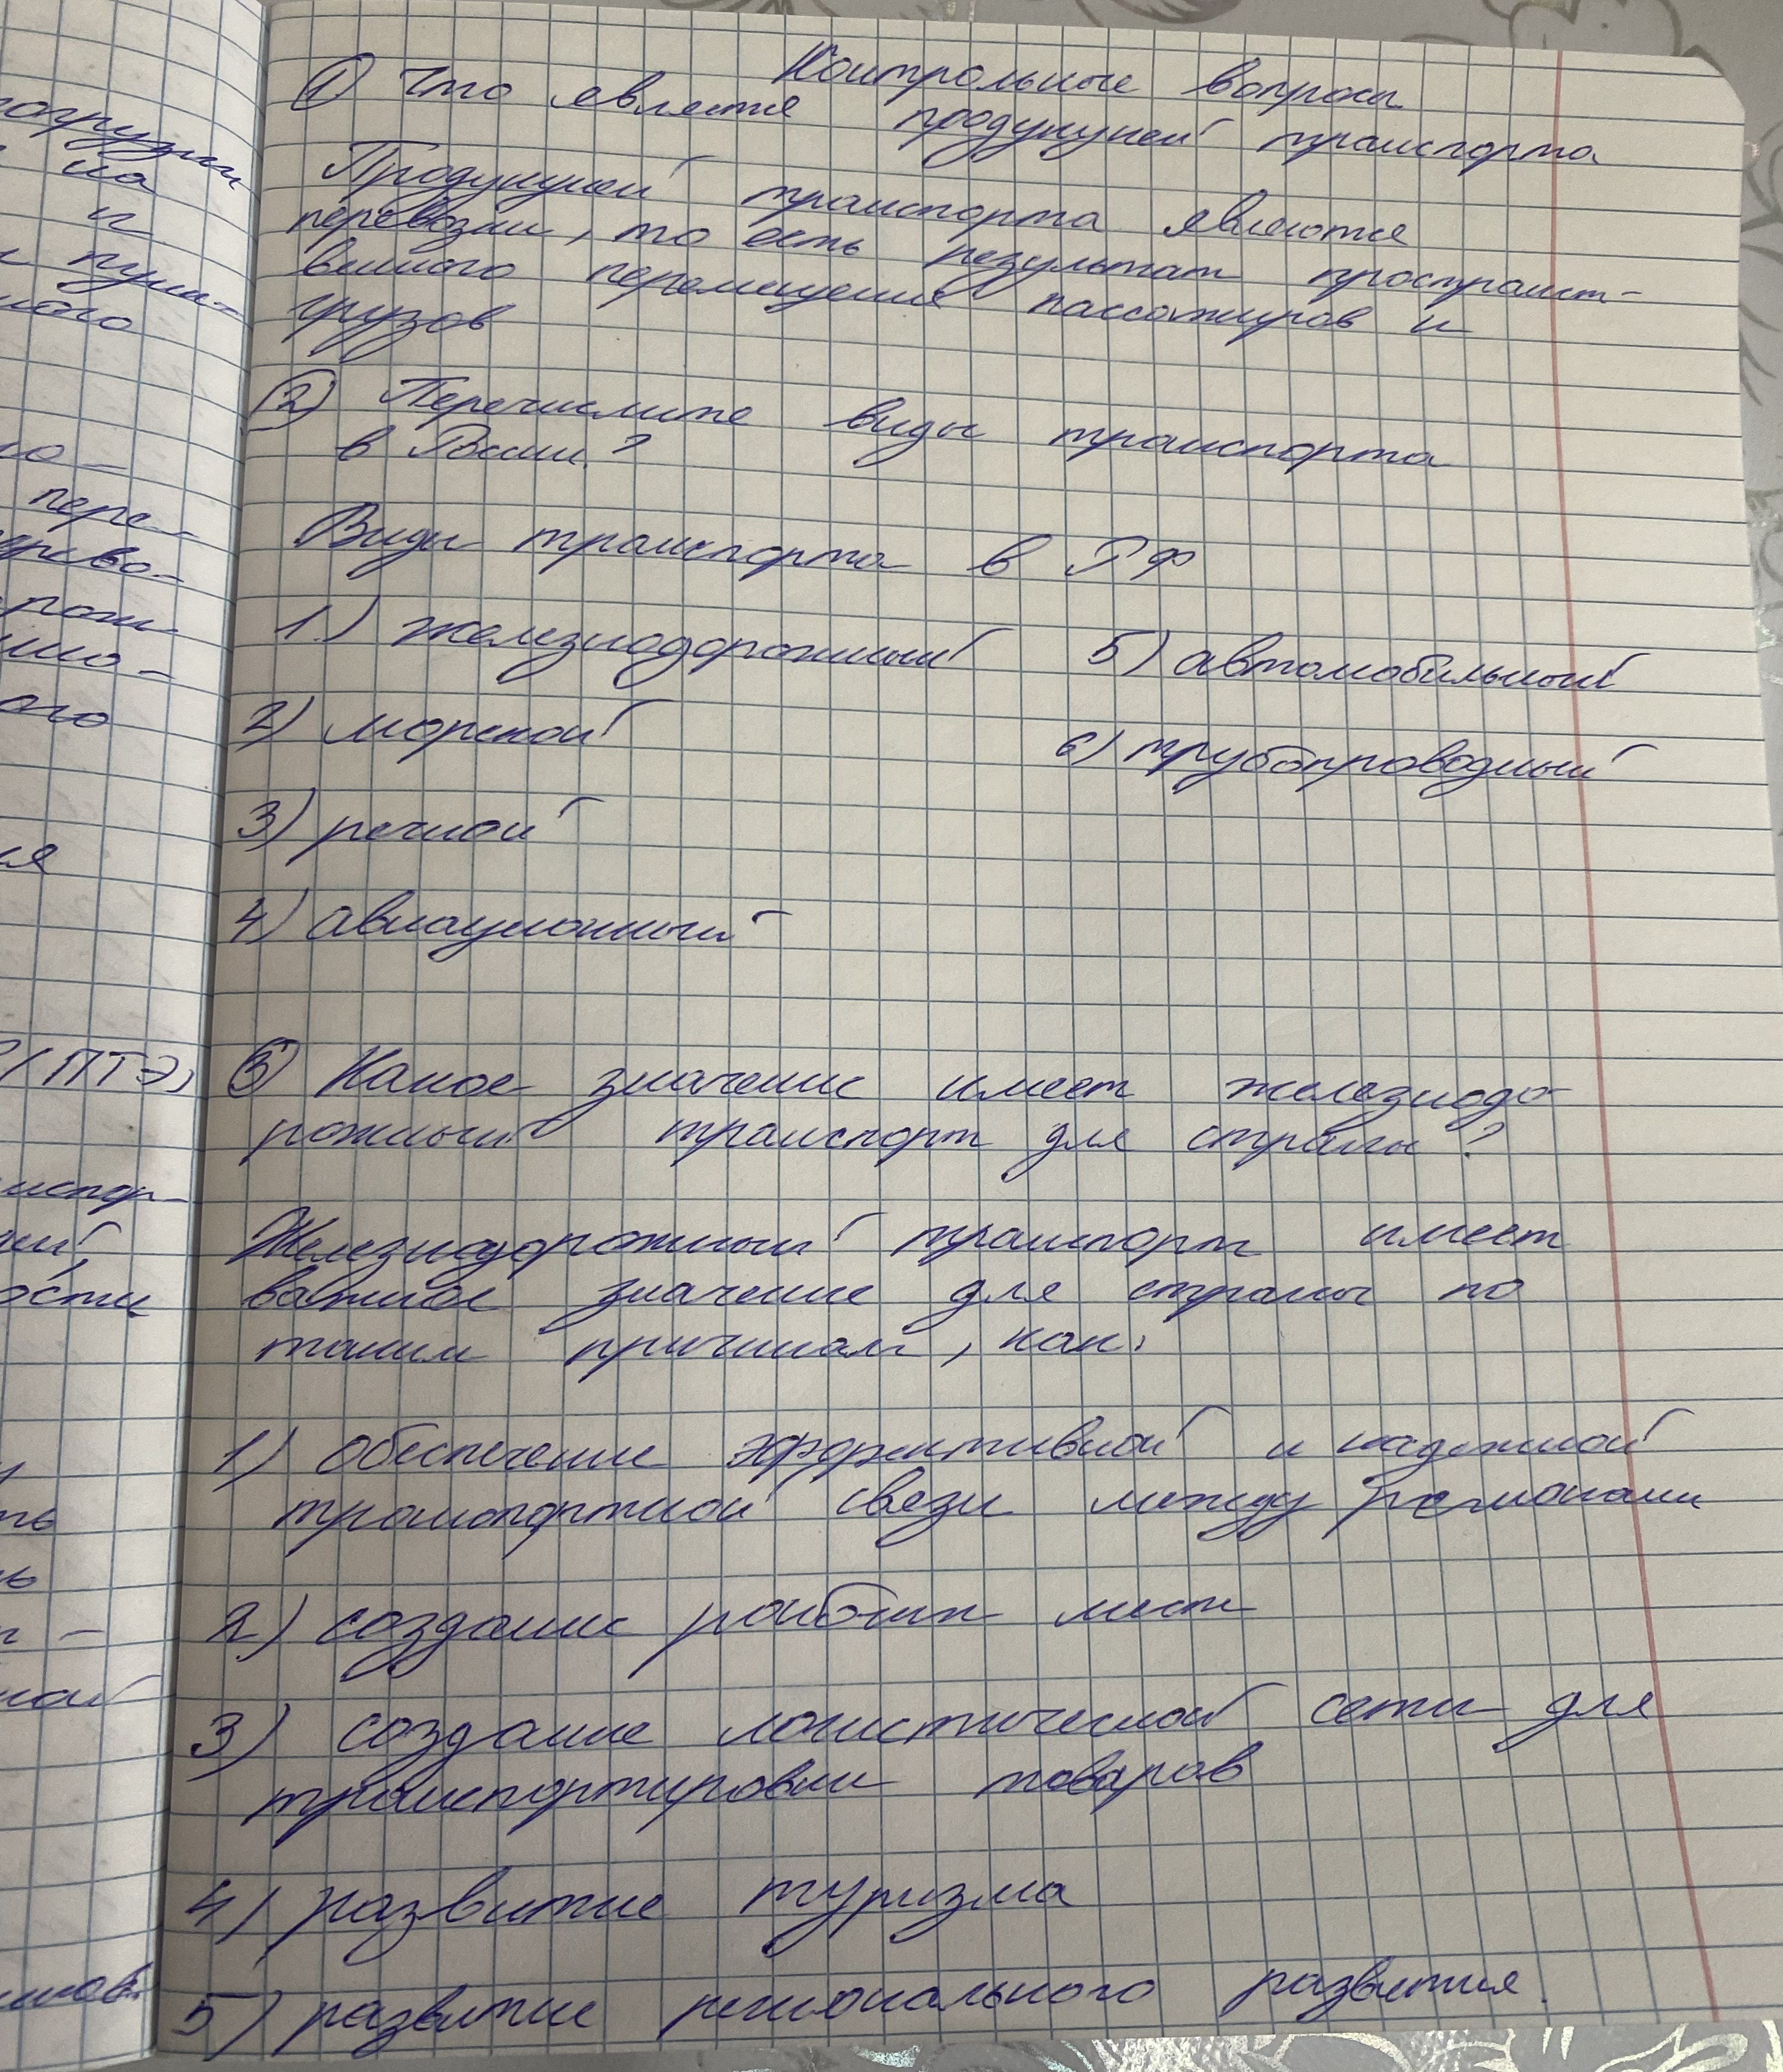 Контрольные вопросы
① Что является продукцией транспорта
Продукцией транспорта являются
перевозки, то есть результат пространст-
венного перемещения пассажиров и
грузов
② Перечислите виды транспорта
в России?
Виды транспорта в РФ
1.) железнодорожный
2) морской
3) речной
4) авиационный
5) автомобильный
6) трубопроводный
③ Какое значение имеет железнодо-
рожный транспорт для страны?
Железнодорожный транспорт имеет
важное значение для страны по
таким причинам, как:
1) обеспечение эффективной и надежной
транспортной связи между регионами
2) создание рабочих мест
3) создание логистической сети для
транспортировки товаров
4) развитие туризма
5) развитие регионального развития.
на
и
пере-
ого
(ПТЭ)